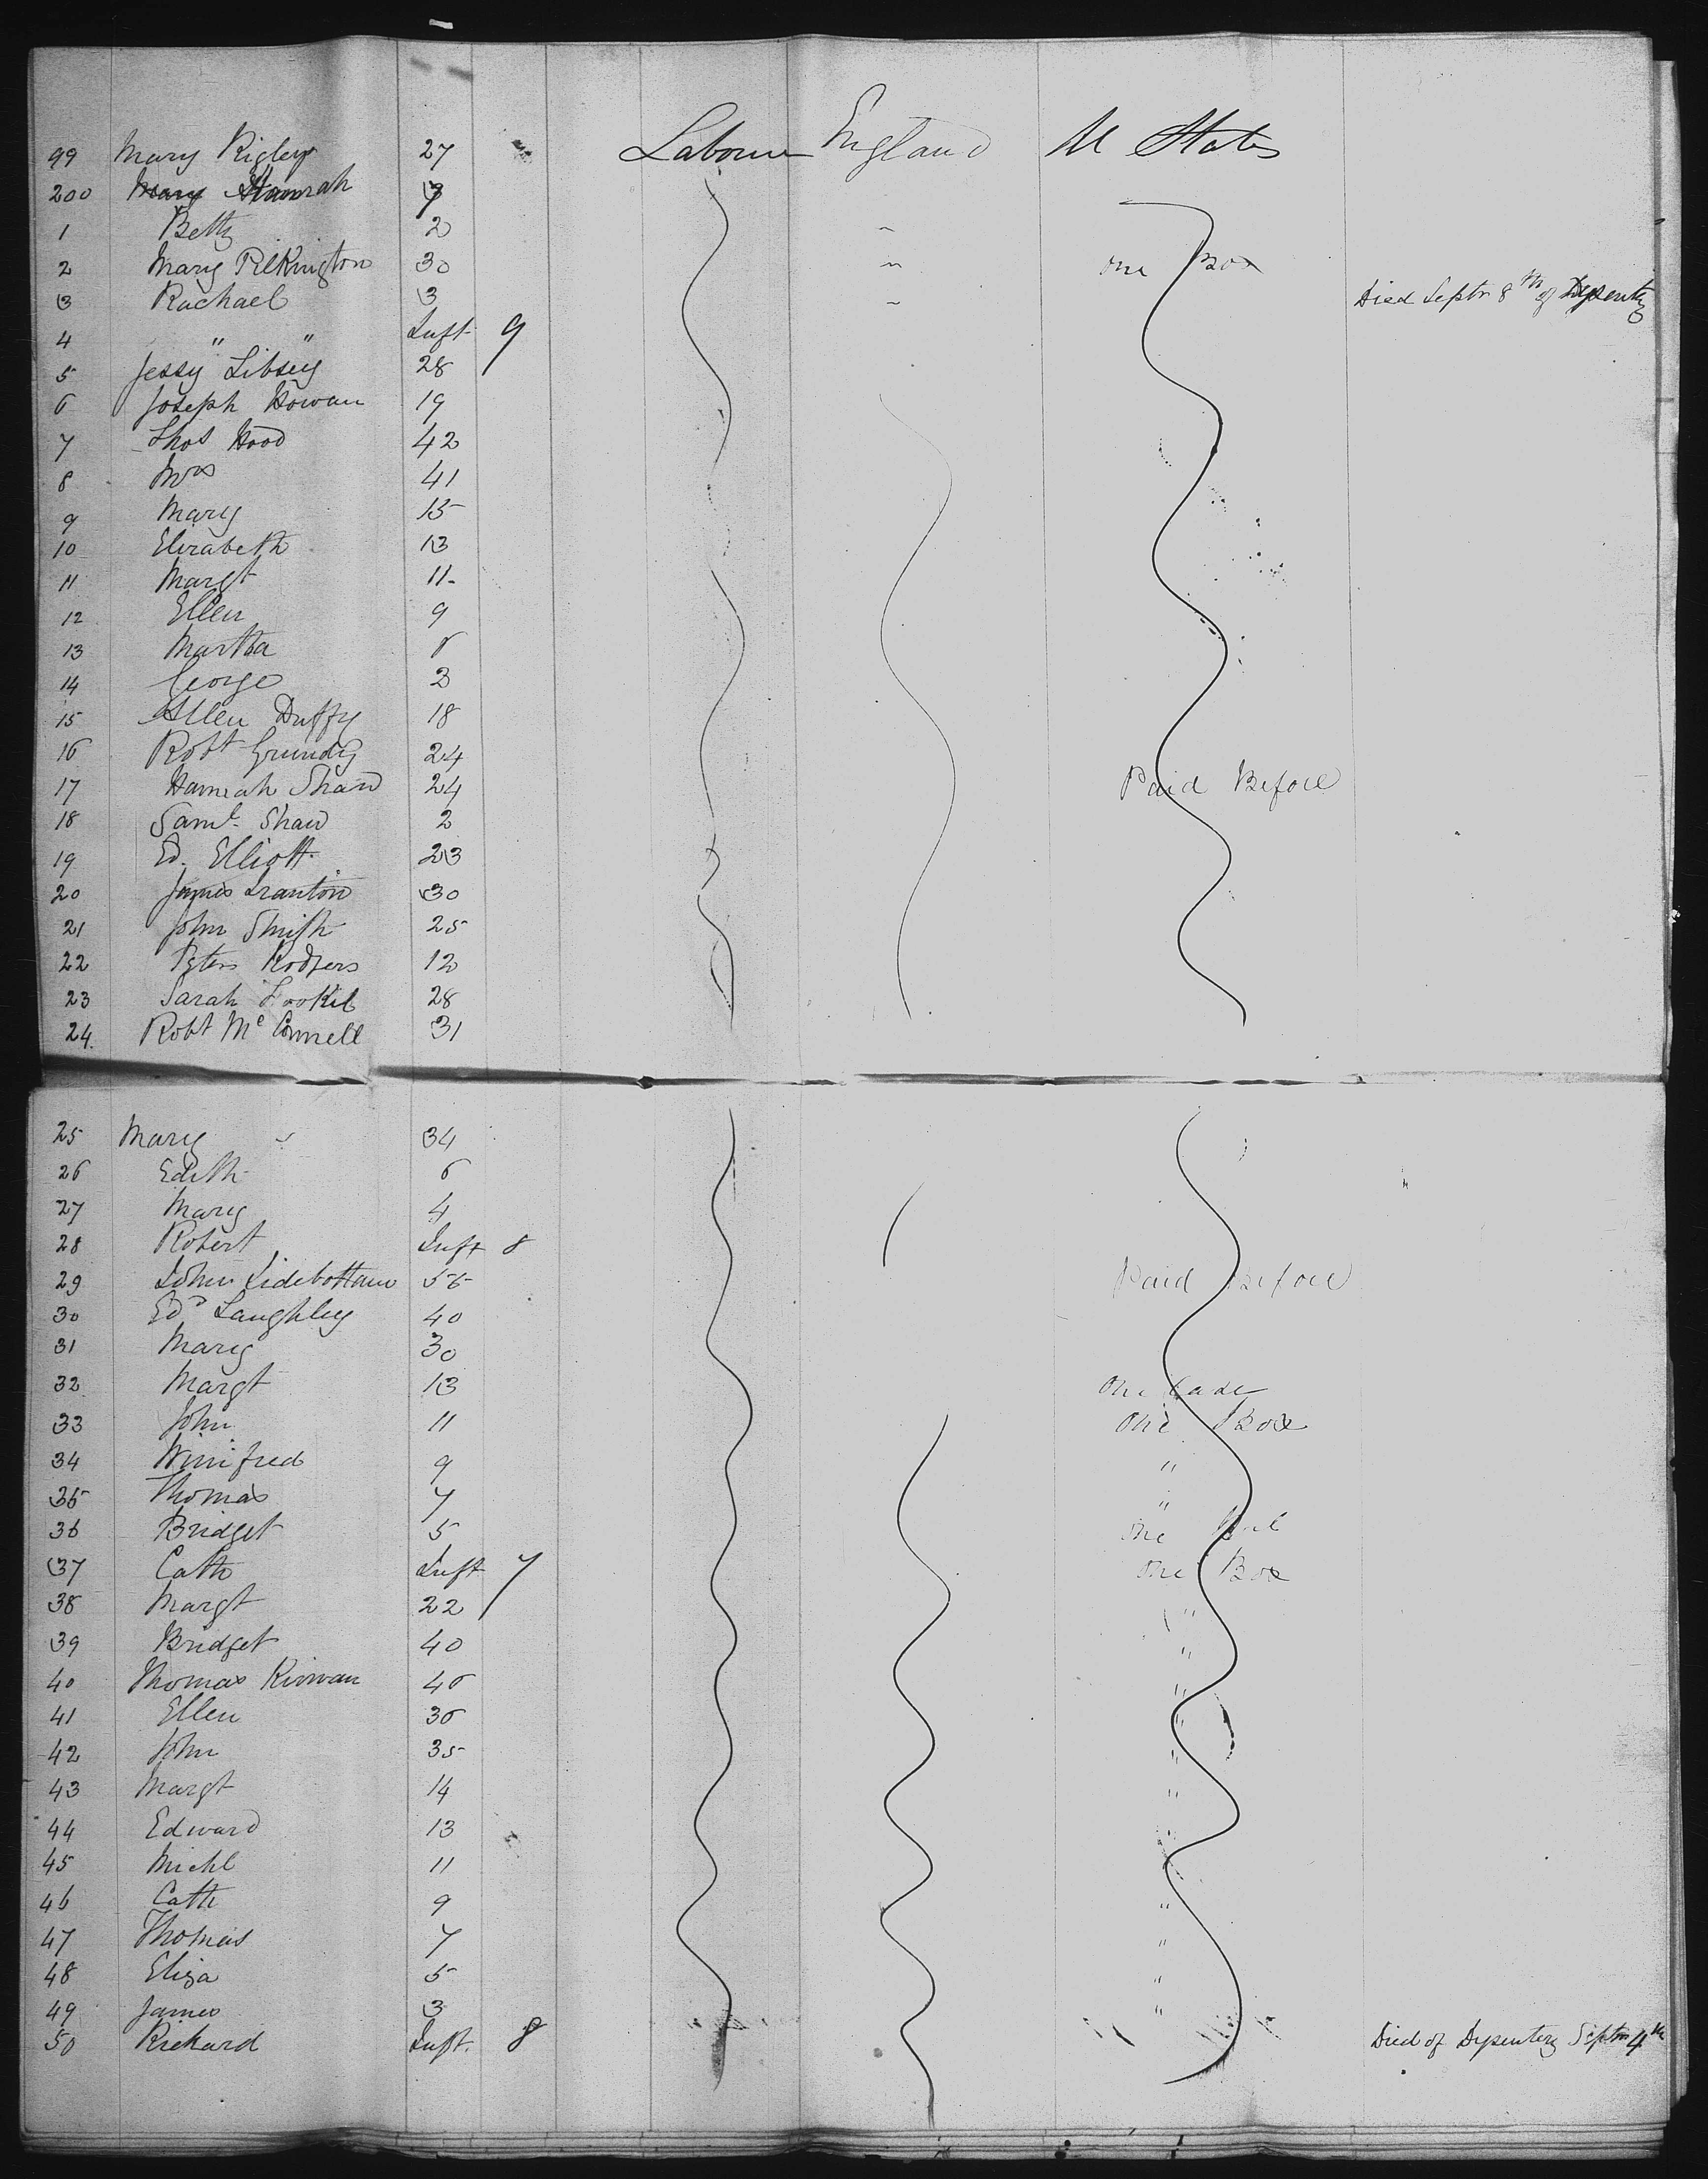 99 Mary Rigley 27 Labourer England U States
200 Hannah 7
1 Betty 2 "
2 Mary Pilkington 30 " One Box
3 Rachael 3 " Died Septr 8th of Dysentry
4 " " Inft 9
5 Jessy Libsey 28
6 Joseph Howan 19
7 Thos Hood 42
8 Mrs 41
9 Mary 15
10 Elizabeth 13
11 Margt 11
12 Ellen 9
13 Martha 6
14 George 3
15 Allen Duffy 18
16 Robt Grundy 24
17 Hannah Shaw 24 Paid Before
18 Saml Shaw 2
19 Ed. Elliott 23
20 James 30
21 John Smith 25
22 Peter Rodgers 12
23 Sarah 28
24. Robt McConnell 31
25 Mary " 34
26 Edith 6
27 Mary 4
28 Robert Inft 8
29 John Sidebottam 56 Paid Before
30 Edd Laughley 40
31 Mary 30
32 Margt 13 One Case
33 John 11 One Box
34 Winifred 9 "
35 Thomas 7 "
36 Bridget 5 One
37 Cath Inft 7 One Box
38 Margt 22 "
39 Bridget 40 "
40 Thomas Kirwan 46 "
41 Ellen 36 "
42 John 35 "
43 Margt 14 "
44 Edward 13 "
45 Michl 11
46 Cath 9 "
47 Thomas 7 "
48 Eliza 5 "
49 James 3 "
50 Richard Inft. 8 Died of Dysentery Septm 4th